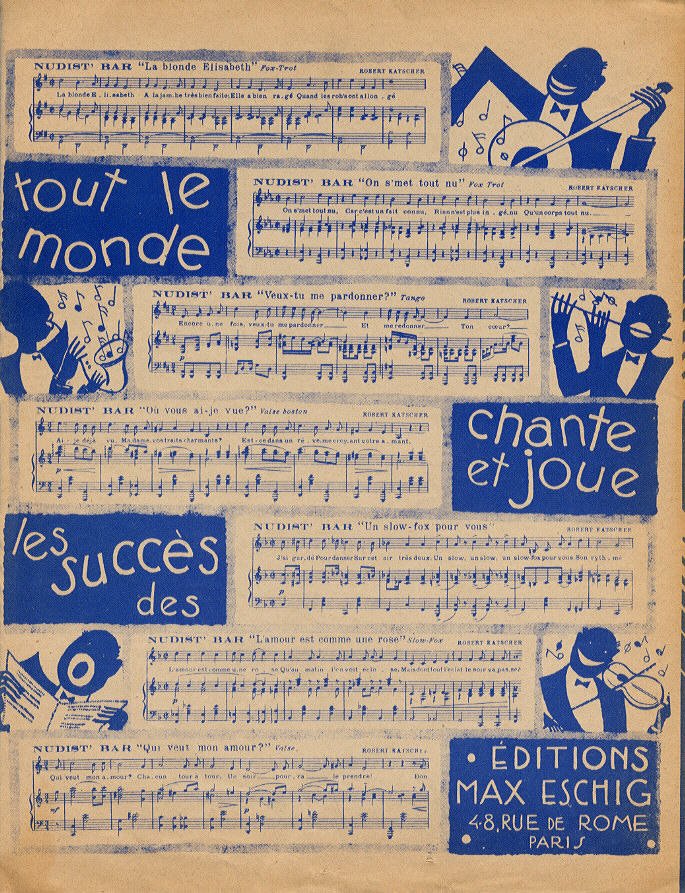 NUDIST' BAR "La blonde Elisabeth" Fox-Trot ROBERT KATSCHER
La blonde E . li . sabeth A la jam.be très bien faite; Elle a bien ra . gé Quand les rob's ont allon . gé
tout le
monde
NUDIST' BAR "On s'met tout nu" Fox Trot ROBERT KATSCHER
On s'met tout nu, Car c'est un fait connu, Rien n'est plus in . gé.nu Qu'un corps tout nu.
NUDIST' BAR "Veux-tu me pardonner?" Tango ROBERT KATSCHER
Encore u.ne fois, veux-tu me pardonner Et me redonner Ton cœur?
p
NUDIST' BAR "Où vous ai-je vue?" Valse boston ROBERT KATSCHER
Ai - je déjà vu, Madame, vos traits charmants? Est-ce dans un rê . ve, me croy.ant votre a . mant.
p
chante
et joue
les
succès
des
NUDIST' BAR "Un slow-fox pour vous" ROBERT KATSCHER
J'ai gar.dé Pour danser Sur cet air très doux: Un slow, un slow, un slow-fox pour vous Son ryth . me
NUDIST' BAR "L'amour est comme une rose" Slow-Fox ROBERT KATSCHER
L'amour est comme u.ne ro . se Qu'au matin l'on voit éclo . se, Mais dont tout l'éclat le soir va pas.ser
p
NUDIST' BAR "Qui veut mon amour?" Valse. ROBERT KATSCHER
Qui veut mon a.mour? Cha.cun tour à tour, Ce soir pour . ra le prendre! Bon
mf
• ÉDITIONS
MAX ESCHIG
48, RUE DE ROME
• PARIS •